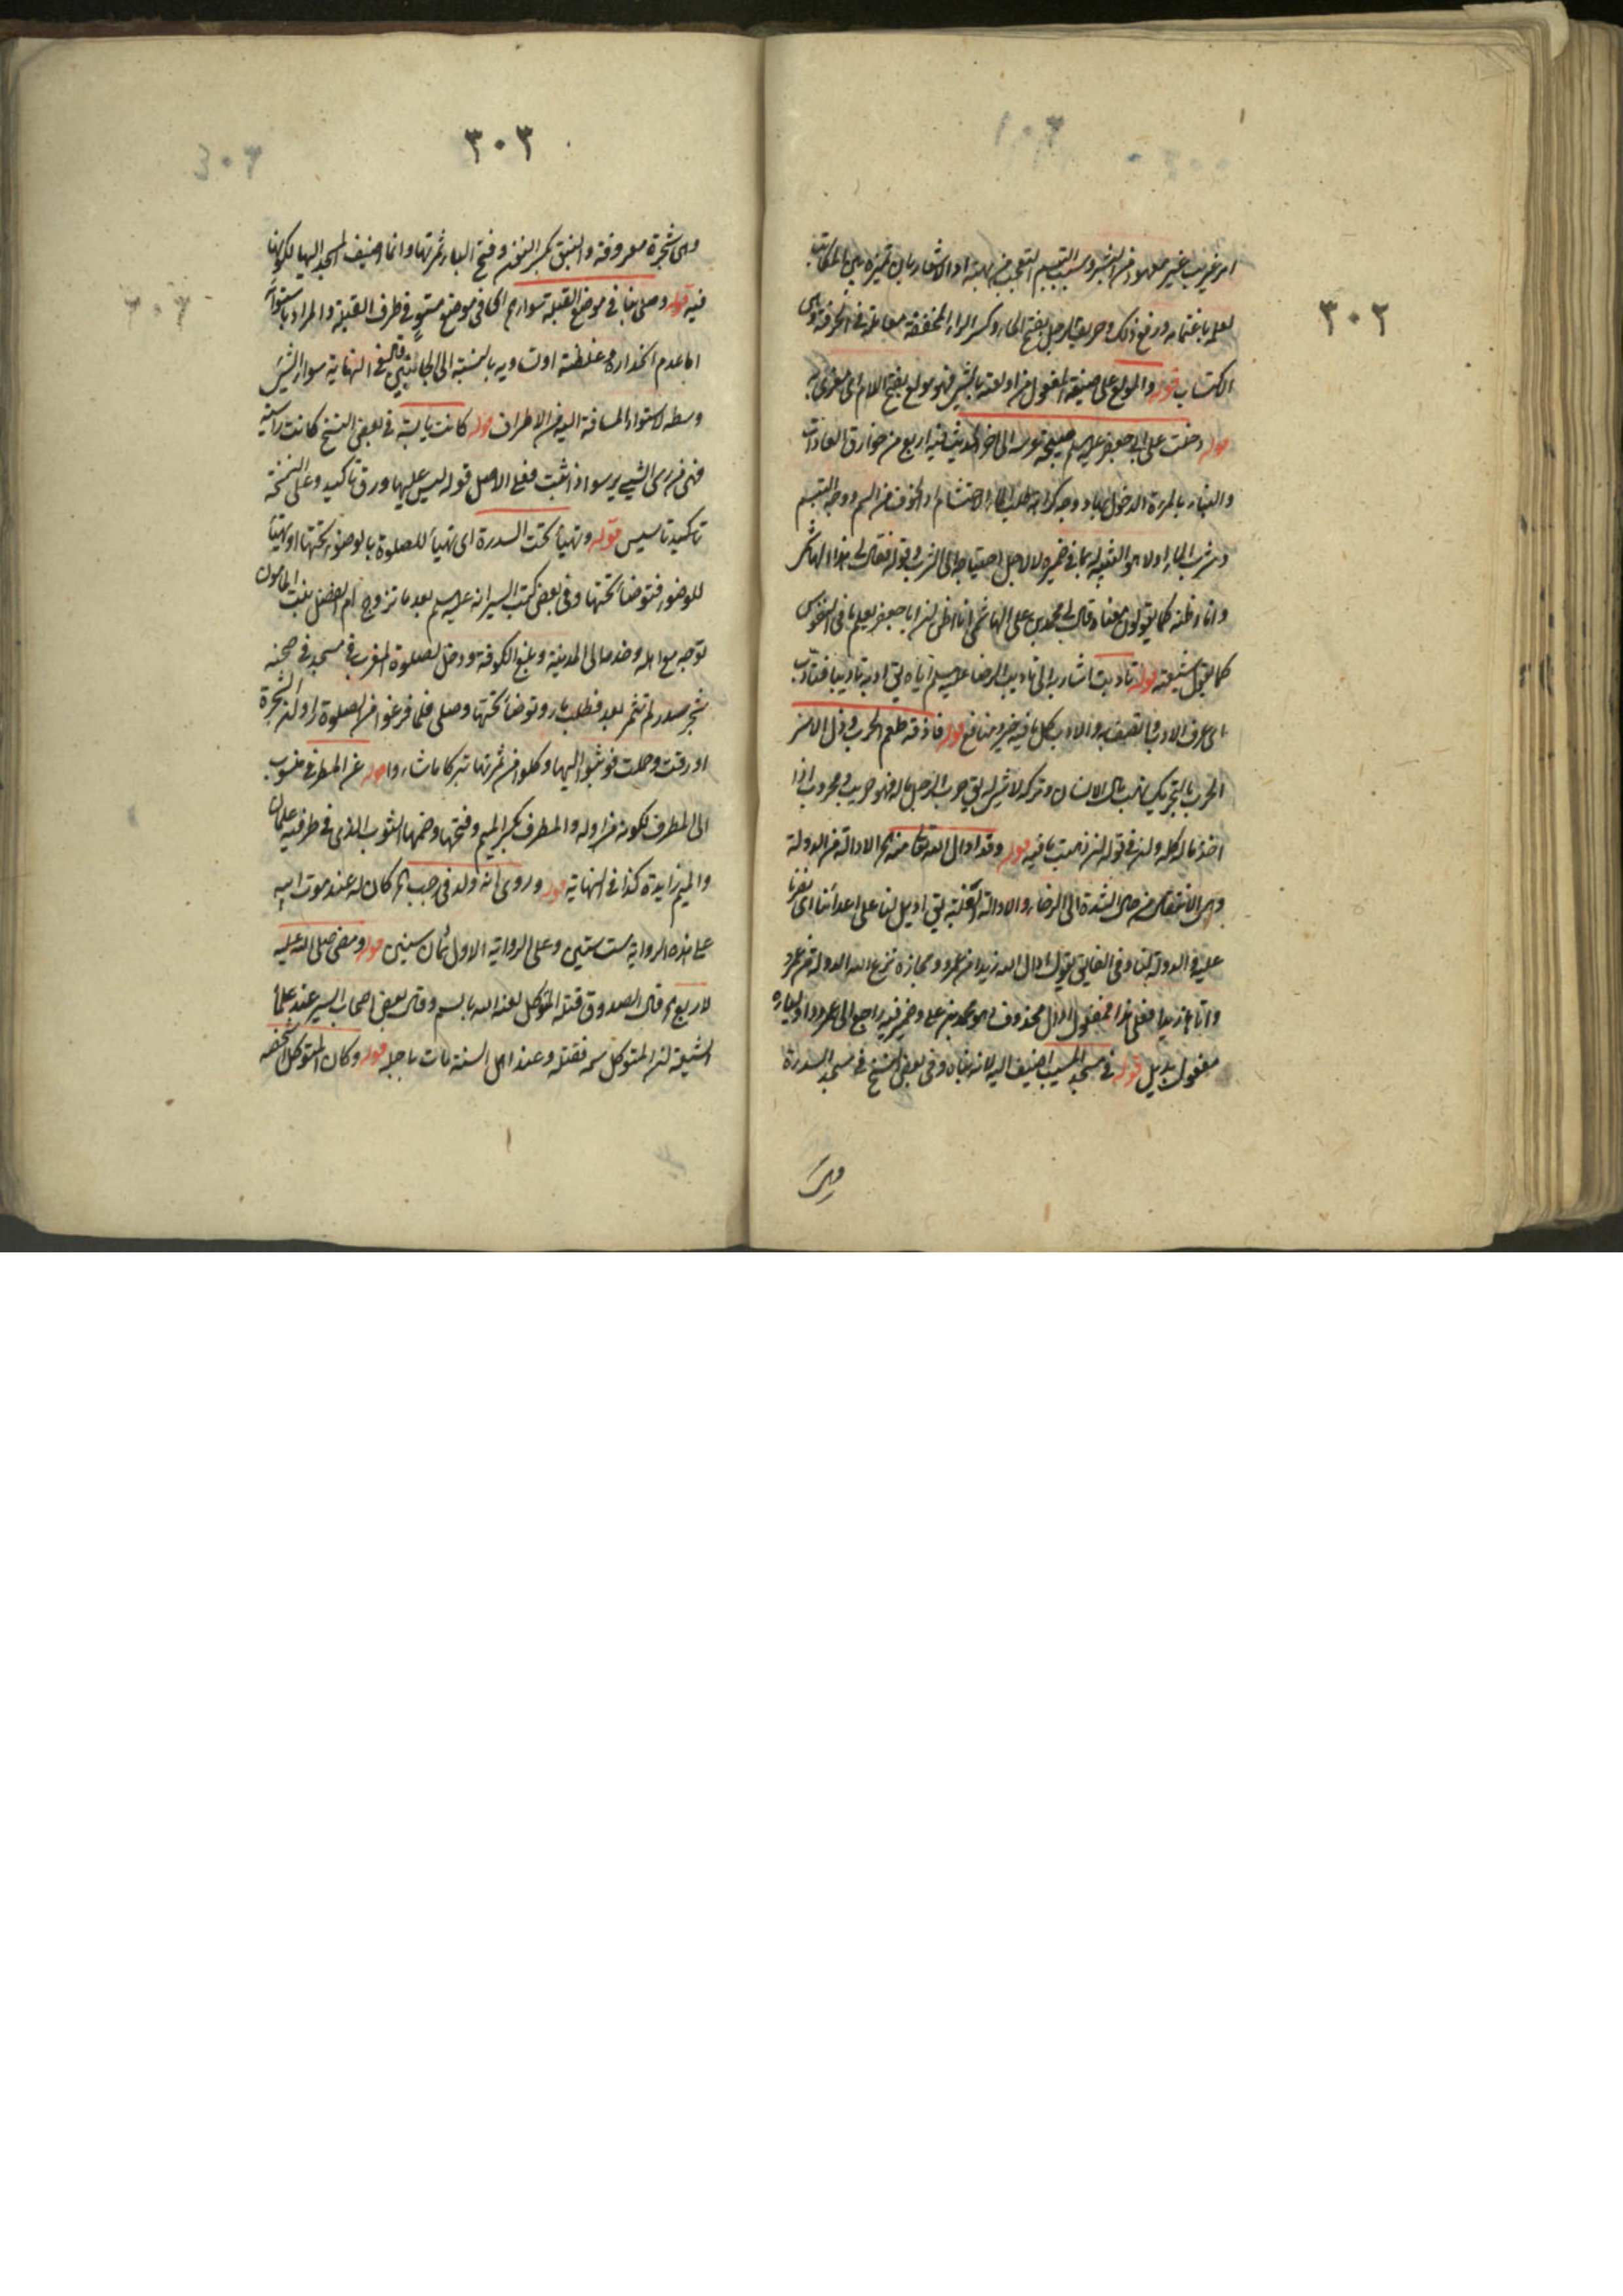 ٣٠٢
امر غريب غير معهود من البشر وسبب التبسم التعجب من
لعله باغتمامه ورفع ذلك وحريف الرجل بفتح الحاء وكسر الراء المخففة معامله في الحرفة وهى
الاكتساب قوله والمولع على صيغة المفعول من اولعته بالشىء فهو مولع بفتح اللام اى مغرى به
قوله دخلت على ابى جعفر عليه السلم صبيحة عرسه الى اخر الحديث فيه اربع من خوارق العادات
والبناء بالمرءة الدخول بها ووجه كراهة طلب الماء الاحتشام او الخوف من السم ووجه التبسم
وشرب الماء اولا هو التنبيه بما في ضميره لا لاجل احتياجه الى الشرب قوله فقال لى هذا الهاشمى
وانا اظنه كما يقولون معناه قال لى محمد بن على الهاشمى انا اظن ان ابا جعفر يعلم ما في النفوس
كما يقول شيعته قوله تاديت اشار به الى تاديب الرضا عليه السلم اياه يق ادبه تاديبا فتادب
اى عرف الادب واتصف به والادب كل ما فيه خير ومنافع قوله فاذقه طعم الحرب وذل الاسر
الحرب بالتحريك نهب مال الانسان وتركه لا شىء له يق حرب الرجل ماله فهو حريب ومحروب اذا
اخذ ماله كله ولن في قوله لن ذهبت نافيه قوله وقد ادال الله تعالى منه الخ الادالة من الدولة
وهى الانتقال من حال الشدة الى الرخاء والادالة الغلبة يق اديل لنا على اعدائنا اى نصرنا
عليهم والدولة لنا وفى الفايق يقول ادال الله زيدا من عمرو ومجازه نزع الله الدولة من عمرو
واتاها زيدا فعلى هذا مفعول ادال محذوف وهو محمد بن على وضمير منه راجع الى عمر
مفعول بديل قوله في مسجد المسيب اضيف اليه لانه بناه وفى بعض النسخ في مسجد السدرة
وهى
٣٠٣
وهى شجرة معروفة والنبق بكسر النون وفتح الباء ثمرتها وانما اضيف المسجد اليها لكونها
فيه قوله وصلى بنا في موضع القبلة سواء اى الخ في موضع مستو في طرف القبلة والمراد باستوائه
اما عدم انحداره وغلظته او تساويه بالنسبة الى الجانبين قال في النهاية سواء الشىء
وسطه لاستواء المسافة اليه من الاطراف قوله كانت يابسة في بعض النسخ كانت راسية
فهى من رسى الشىء يرسو اذا ثبت فعلى الاصل قوله ليس عليها ورق تاكيد وعلى النسخة
تاكيد تاسيس قوله وتهيأ تحت السدرة اى تهيأ للصلوة بالوضوء تحتها او تهيأ
للوضوء فتوضأ تحتها وفى بعض كتب السير انه عليه السلم بعد ما تزوج ام الفضل بنت المامون
توجه مع اهله وخدمه الى المدينة وبلغ الكوفة ودخل لصلوة المغرب في مسجد في صحنه
شجر سدر لم تثمر بعد فطلب ماء وتوضأ تحتها وصلى فلما فرغوا من الصلوة راوا ان الشجرة
اورقت وحملت فوثبوا اليها واكلوا من ثمرتها تبركا ماشاءوا قوله عن المطرفى منسوب
الى المطرف لكونه مزاوله والمطرف بكسر الميم وفتحها وضمها الثوب الذى في طرفيه علمان
والميم زايدة كذا في النهاية قوله وروى انه ولد في رجب الخ كان له عند موت ابيه
على هذه الرواية ست سنين وعلى الرواية الاول ثمان سنين قوله ومضى صلى الله عليه
لاربع الخ قال الصدوق قتله المتوكل لعنه الله بالسم وقال بعض اصحاب السير عند علماء
الشيعة ان المتوكل سمه فقتله وعند اهل السنة مات باجله قوله وكان المتوكل اشخصه